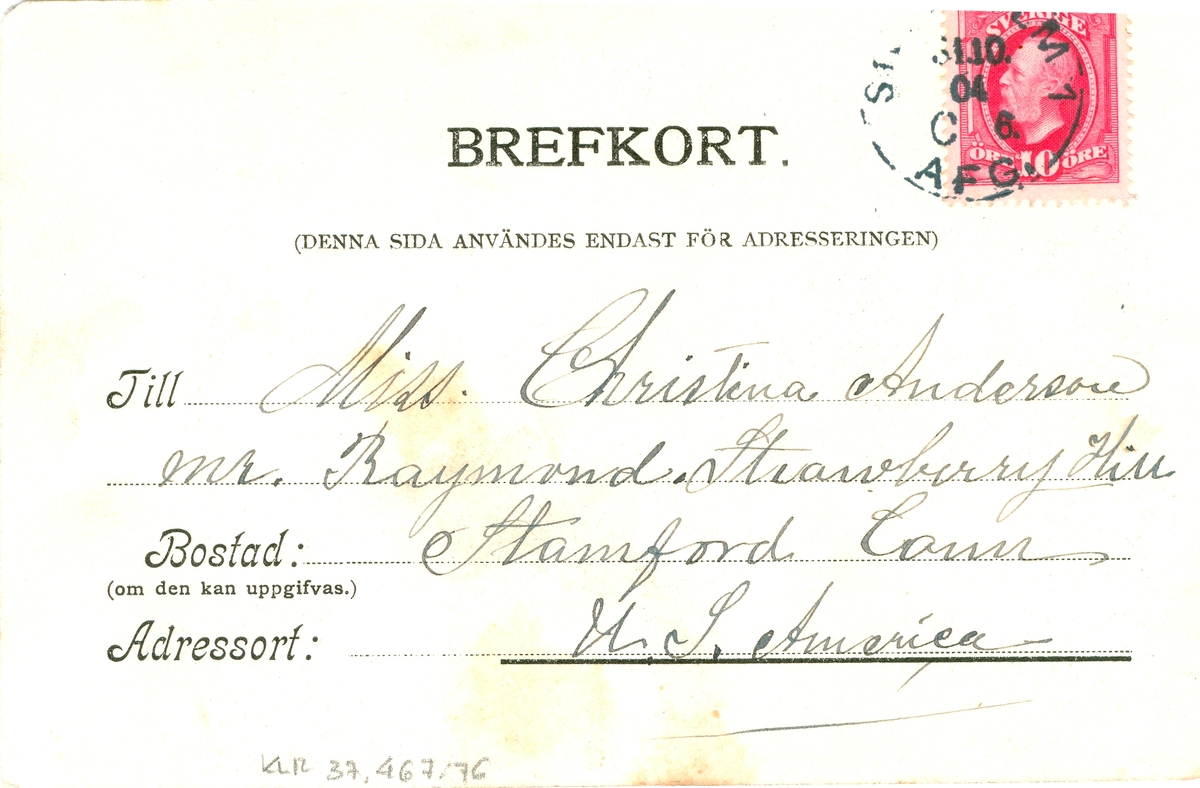 SVERIGE
10
ÖRE ÖRE
31.10.
04
C 6.
AFG.
BREFKORT.
(DENNA SIDA ANVÄNDES ENDAST FÖR ADRESSERINGEN)
Till Miss. Christina Anderson
mr. Raymond. Strawberry Hill
Bostad: Stamford Conn
(om den kan uppgifvas.)
Adressort: U. S. America
KLR 37,467/76